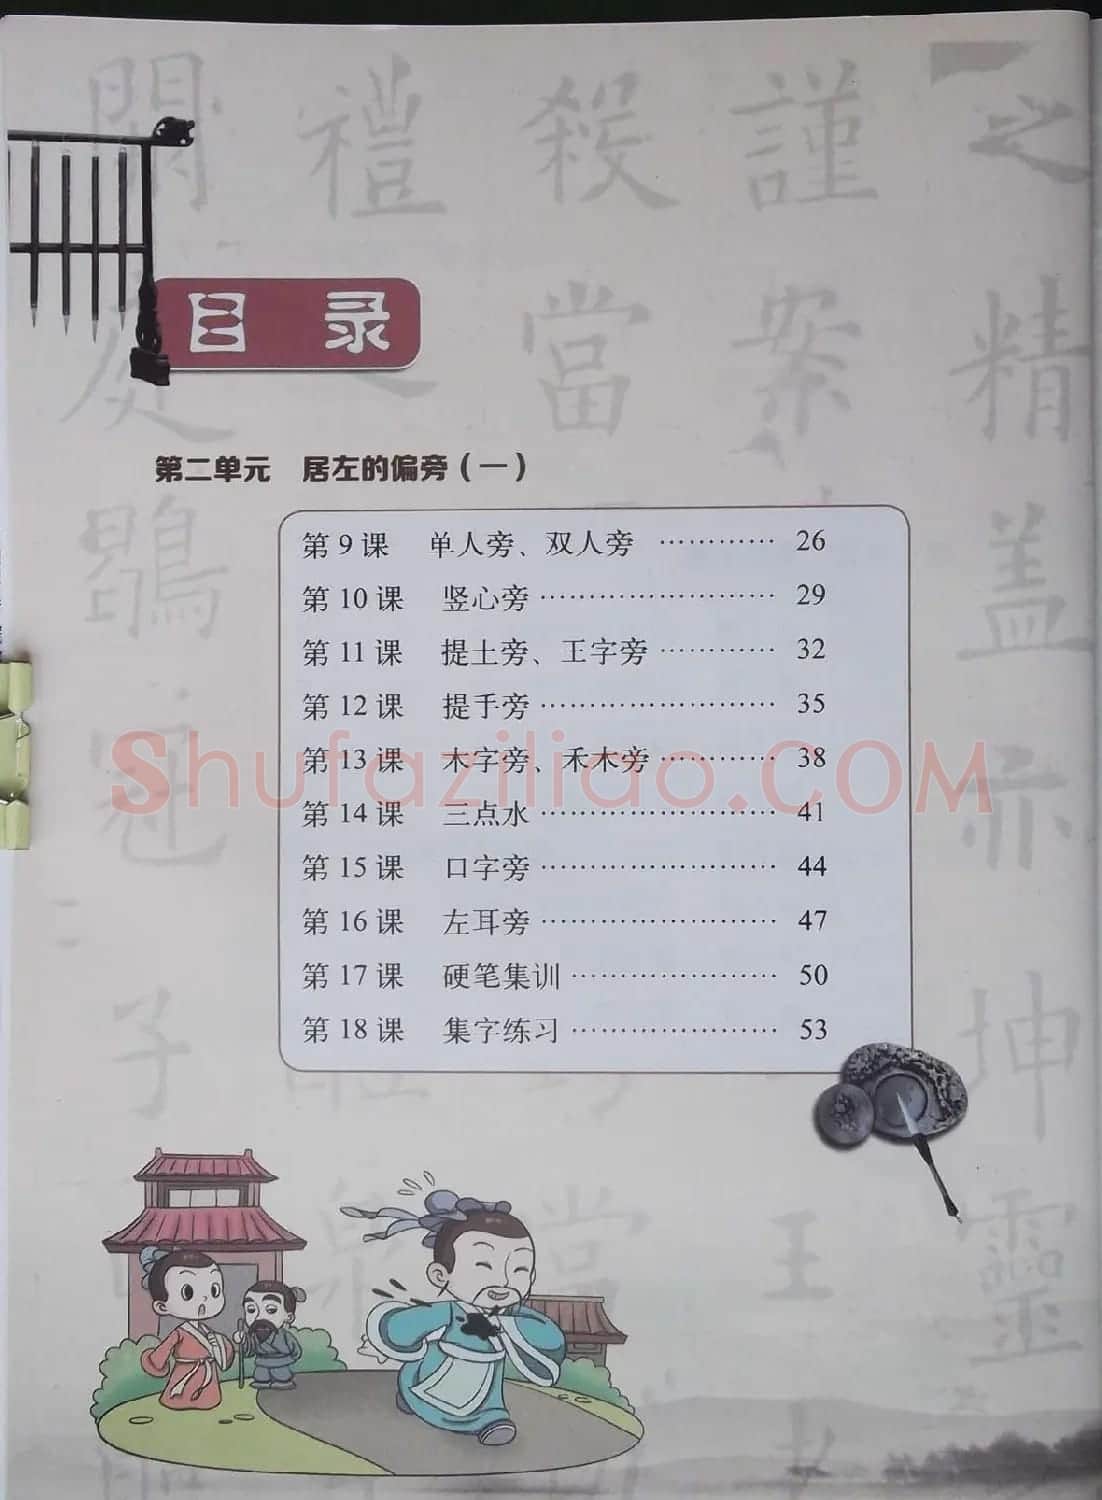 目 录
第二单元 居左的偏旁（一）
第 9 课 单人旁、双人旁 ………… 26
第 10 课 竖心旁 …………………… 29
第 11 课 提土旁、王字旁 ………… 32
第 12 课 提手旁 …………………… 35
第 13 课 木字旁、禾木旁 ………… 38
第 14 课 三点水 …………………… 41
第 15 课 口字旁 …………………… 44
第 16 课 左耳旁 …………………… 47
第 17 课 硬笔集训 ………………… 50
第 18 课 集字练习 ………………… 53
Shufaziliao.COM